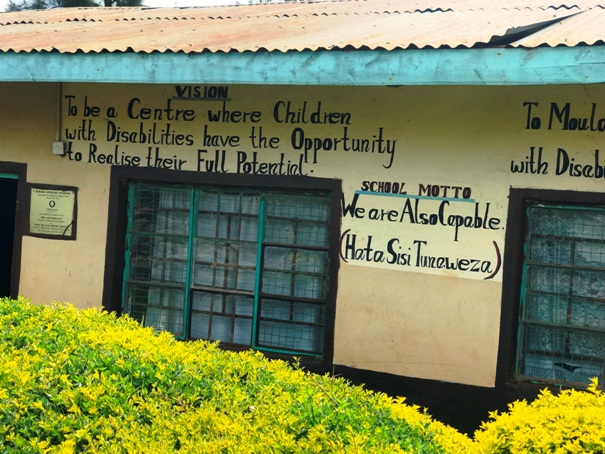 VISION
To be a Centre where Children
with Disabilities have the Opportunity
to Realise their Full Potential.
SCHOOL MOTTO
We are Also Capable.
(Hata Sisi Tunaweza)
To Mould
with Disab